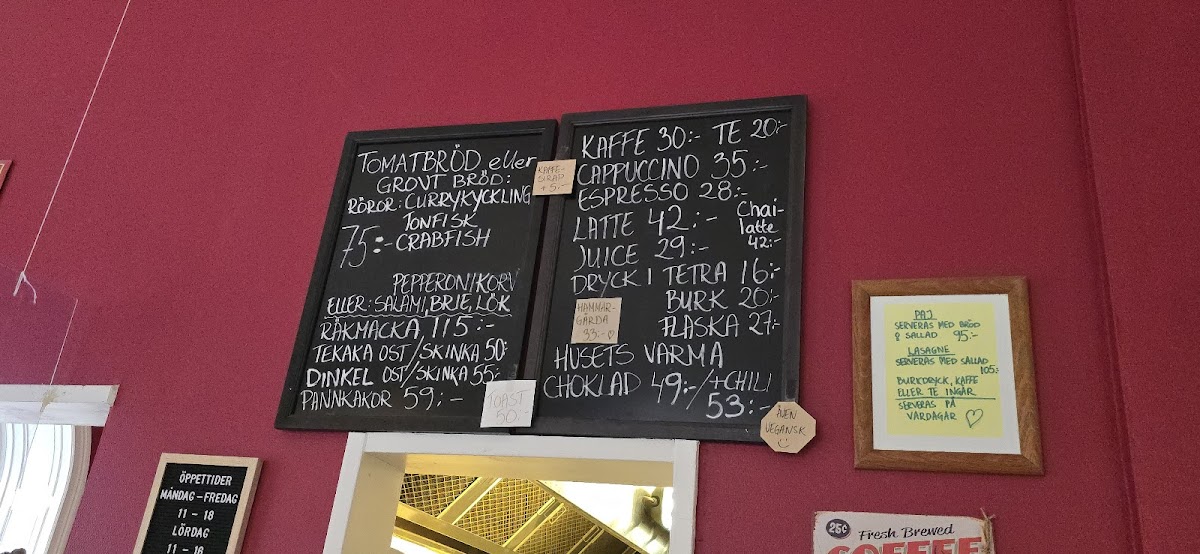 TOMATBRÖD eller
GROVT BRÖD:
RÖROR: CURRYKYCKLING
TONFISK
75:- CRABFISH
PEPPERONIKORV
ELLER: SALAMI, BRIE, LÖK
RÄKMACKA 115:-
TEKAKA OST/SKINKA 50:-
DINKEL OST/SKINKA 55:-
PANNKAKOR 59:-
TOAST
50:-
KAFFE-
SIRAP
+5:-
KAFFE 30:- TE 20:-
CAPPUCCINO 35:-
ESPRESSO 28:-
LATTE 42:-
Chai-
latte
42:-
JUICE 29:-
DRYCK I TETRA 16:-
BURK 20:-
FLASKA 27:-
HAMMAR-
GÄRDA
33:-♡
HUSETS VARMA
CHOKLAD 49:-/+CHILI
53:-
ÄVEN
VEGANSK
PAJ
SERVERAS MED BRÖD
& SALLAD 95:-
LASAGNE
SERVERAS MED SALLAD
105:-
BURKDRYCK, KAFFE
ELLER TE INGÅR
SERVERAS PÅ
VARDAGAR ♡
ÖPPETTIDER
MÅNDAG – FREDAG
11 – 18
LÖRDAG
11 – 16
25¢ Fresh Brewed
COFFEE